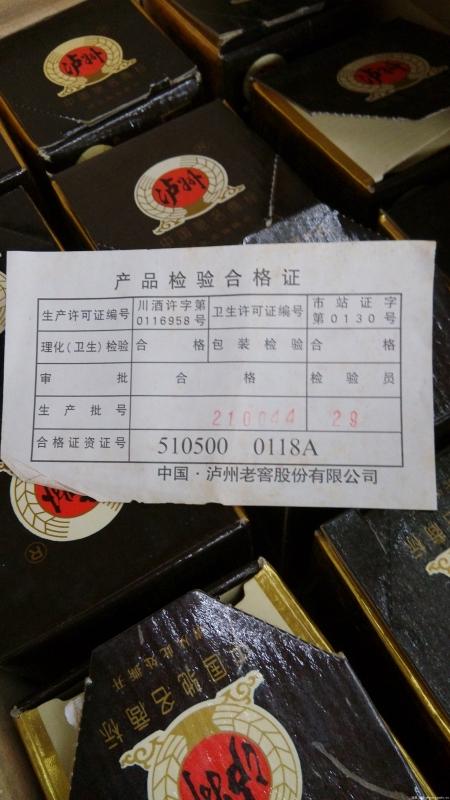 泸州
泸州
泸州
产品检验合格证
生产许可证编号 川酒许字第0116958号 卫生许可证编号 市站证字第0130号
理化(卫生)检验 合格 包装检验 合格
审批 合格 检验员
生产批号 210044 29
合格证资证号 510500 0118A
中国·泸州老窖股份有限公司
®
中国驰名商标
泸州